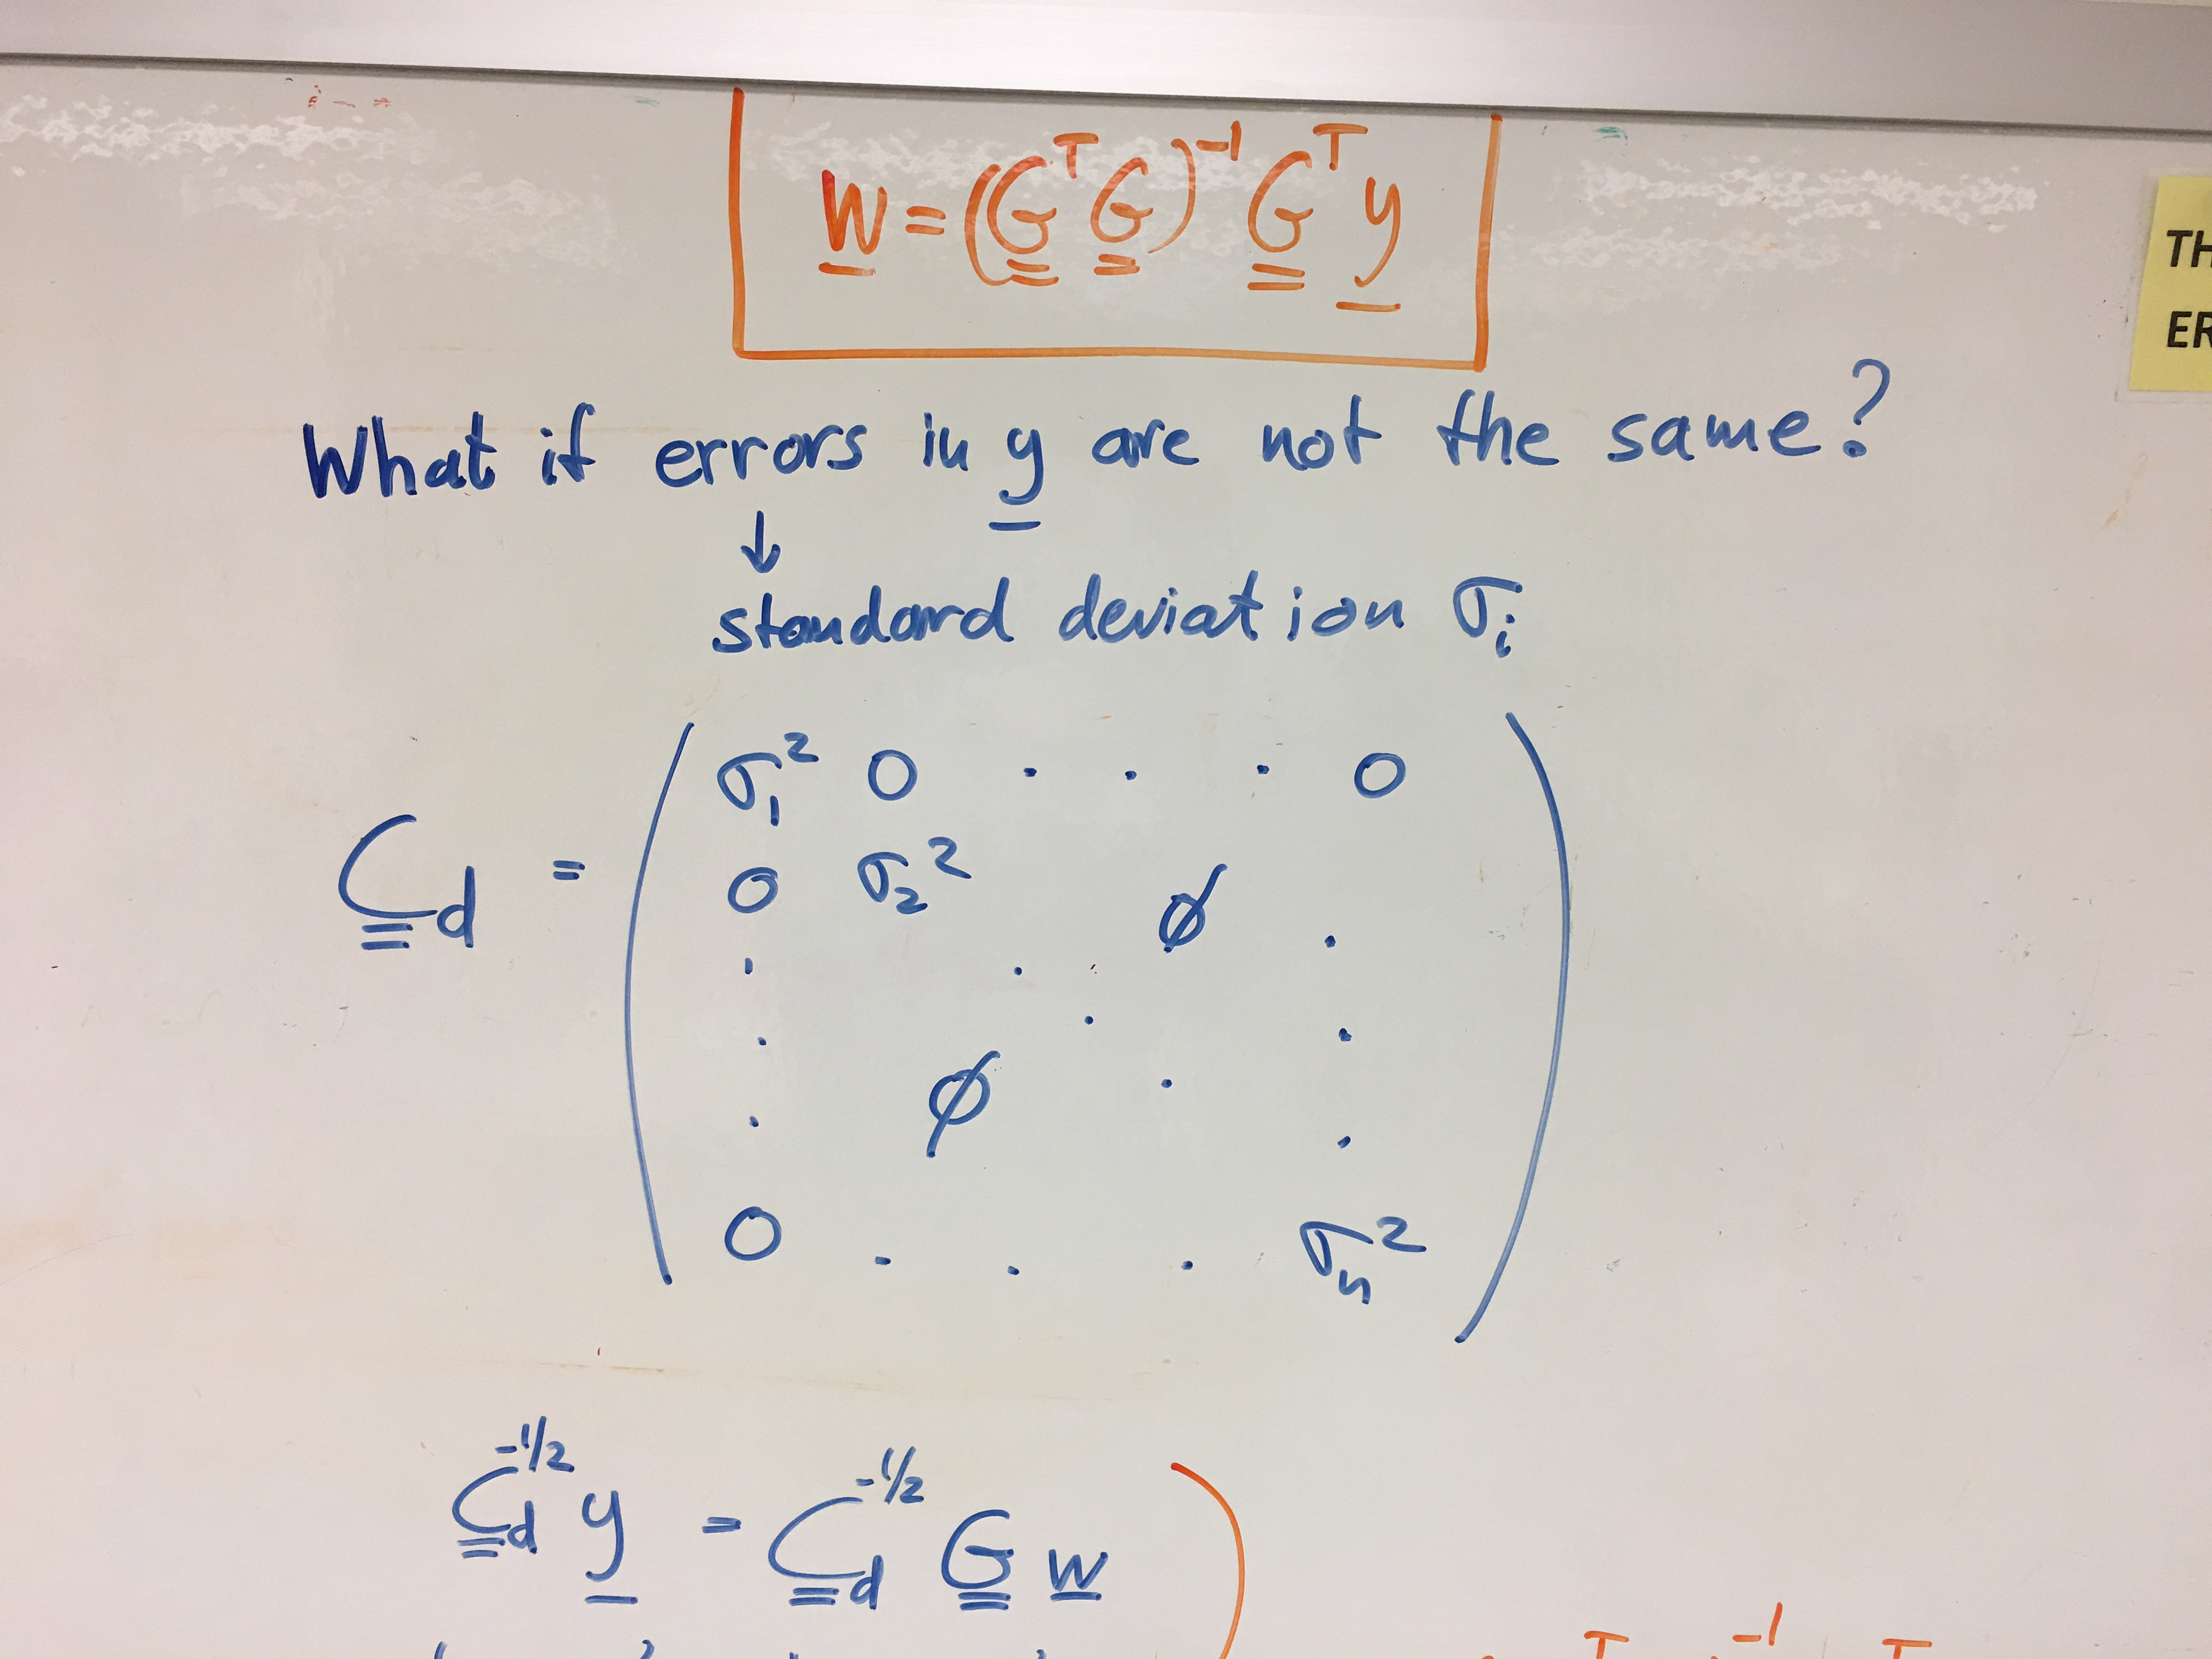 w = (GᵀG)⁻¹ Gᵀ y
TH
ER
What if errors in y are not the same?
↓
standard deviation σᵢ
C_d = ( σ₁² 0 · · · 0
0 σ₂² ∅ ·
· · ·
· · ·
· ∅ · ·
0 · · · σₙ² )
C_d^{-1/2} y = C_d^{-1/2} G w )
T -1 T